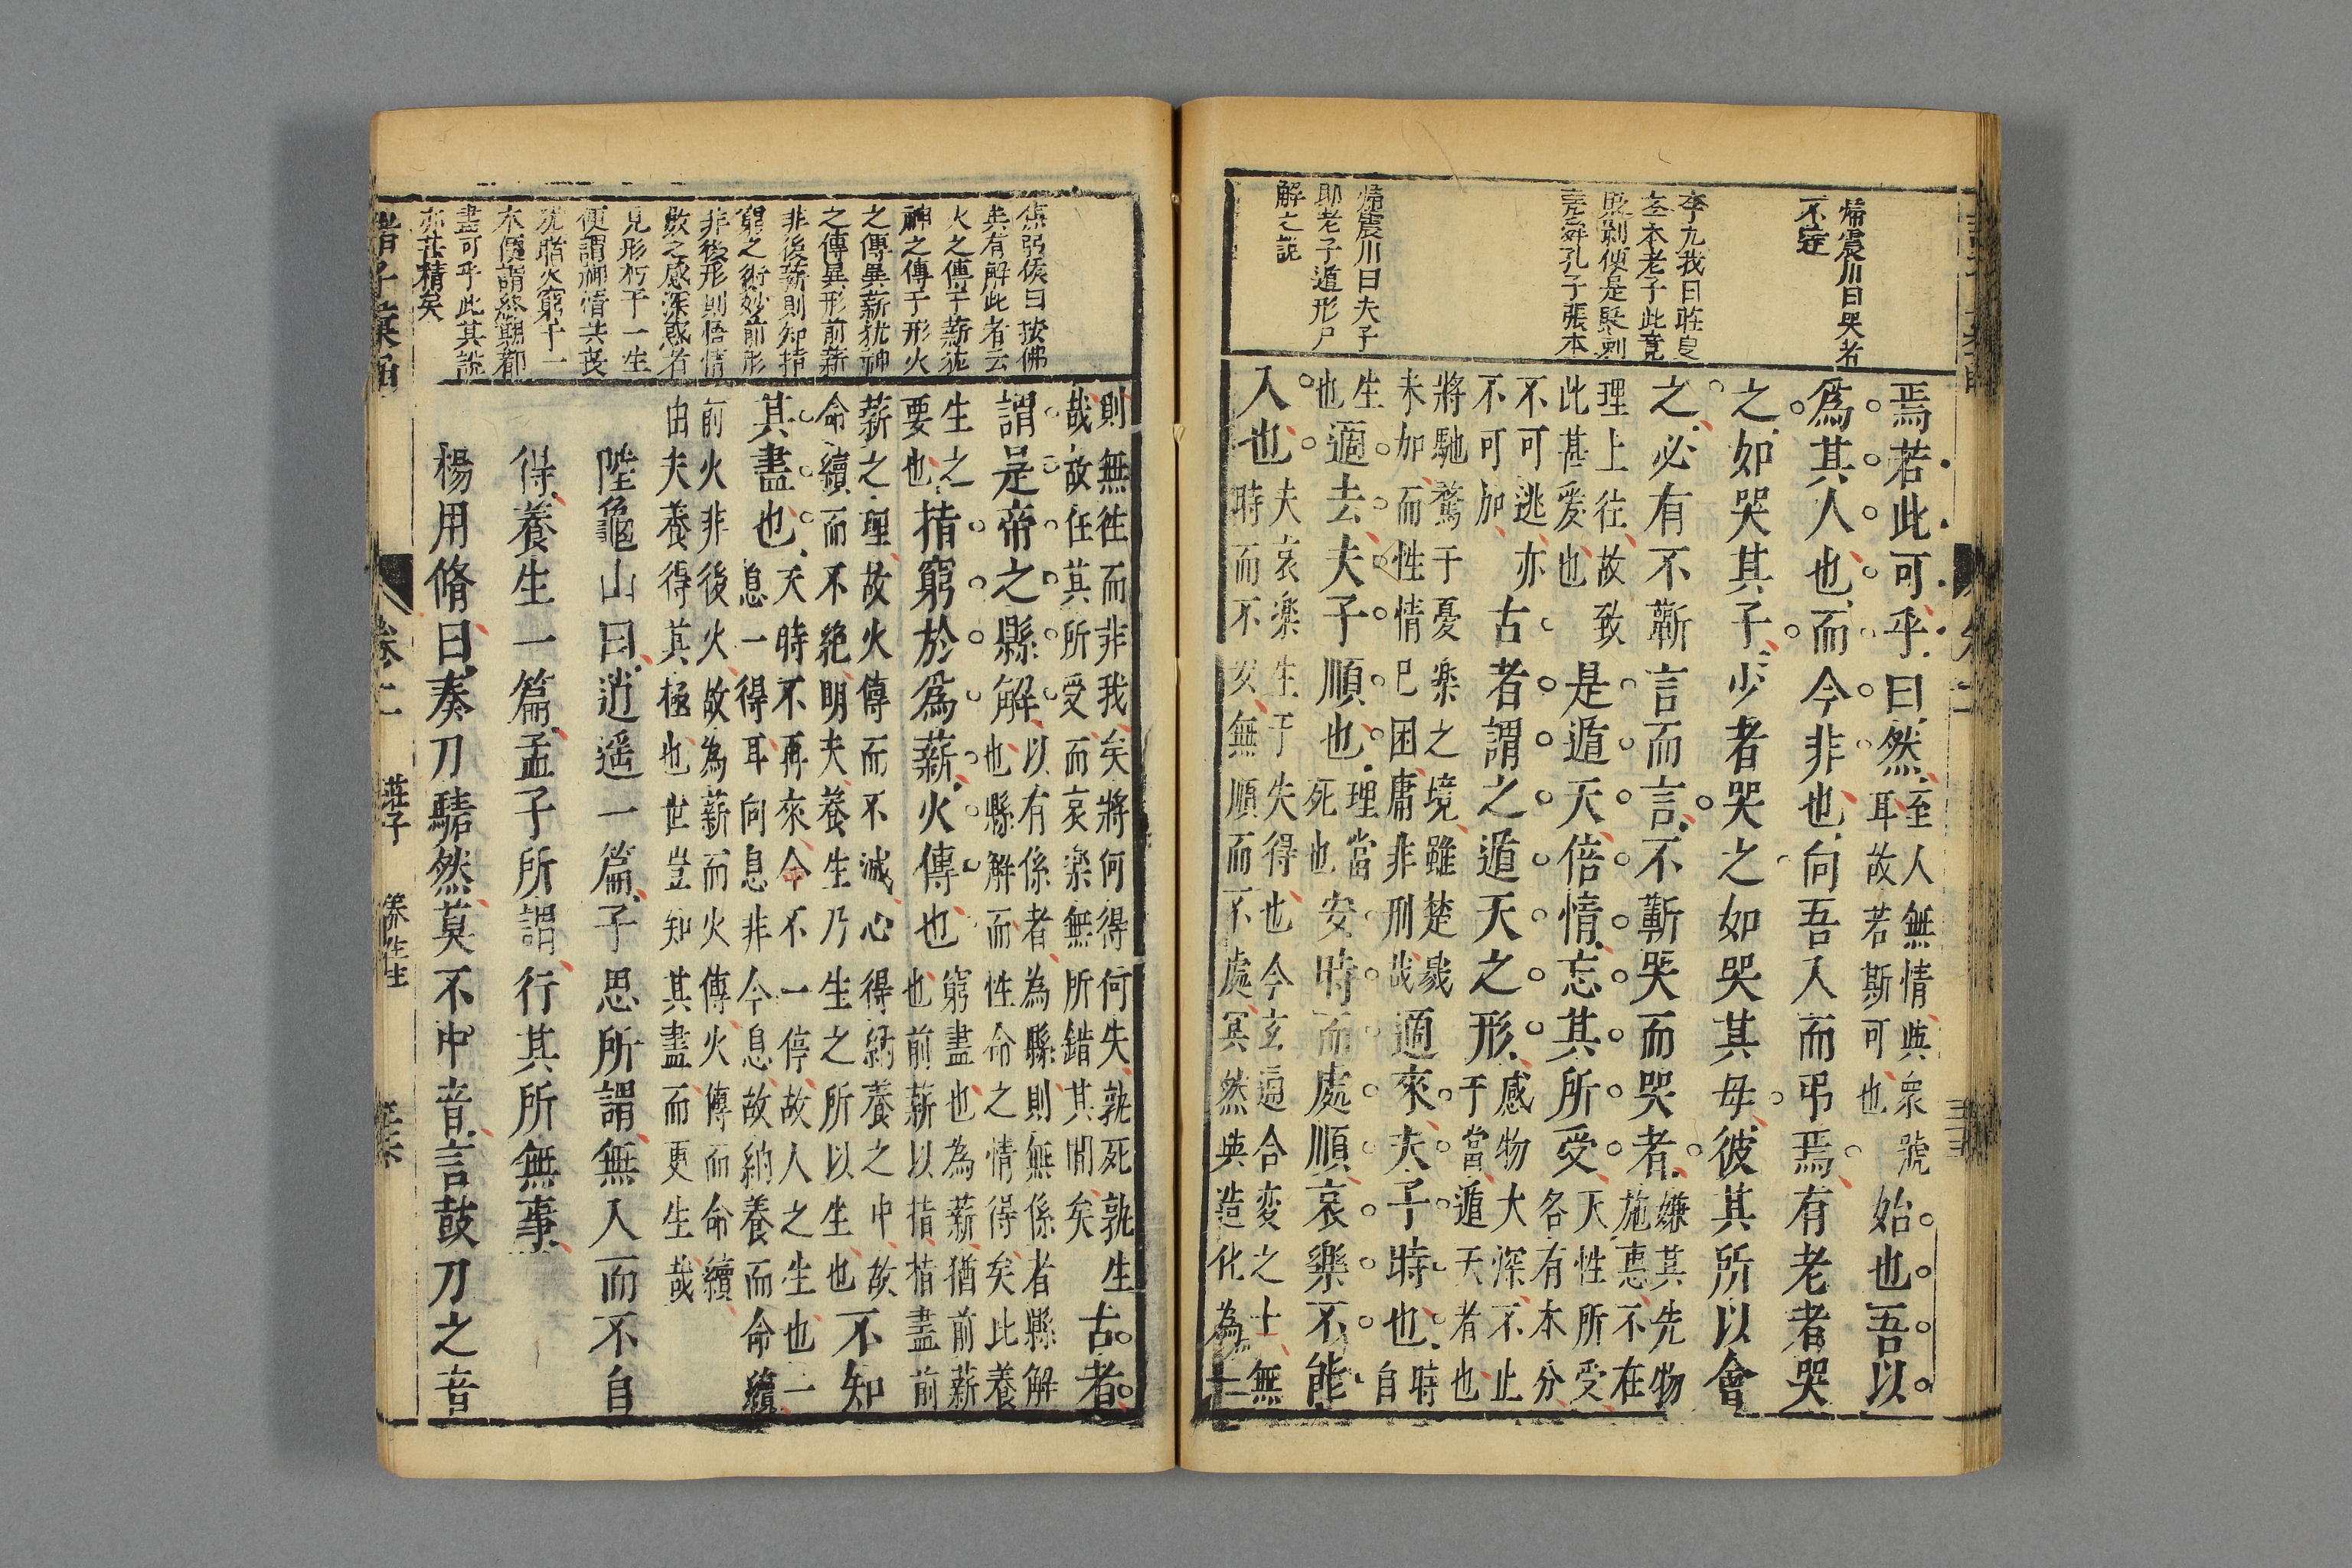 歸震川曰哭者
不窕
李九我曰莊叟
本老子此竟
貶剥便是
孔子張本
歸震川曰夫子
即老子遁形尸
解之説
焉若此可乎曰然至人無情與衆號
耳故若斯可也始也吾以
爲其人也而今非也向吾入而弔焉有老者哭
之如哭其子少者哭之如哭其母彼其所以會
之必有不蘄言而言不蘄哭而哭者嫌其先物
施惠不在
理上往故致
此甚爰也是遁天倍情忘其所受天性所受
各有本分
不可逃亦
不可加古者謂之遁天之形感物大深不止
于當遁天者也
將馳騖于憂樂之境雖楚戮
未加而性情已困庸非刑哉適來夫子時也時
自
生
也適去夫子順也理當
死也安時而處順哀樂不能
入也夫哀樂生于失得也今玄通合変之士無
時而不安無順而不處冥然與造化為一
焦弱侯曰按佛
典有解此者云
火之傳于薪猶
神之傳于形火
之傳異薪猶神
之傳異形前薪
非後薪則知指
窮之術妙前形
非後形則悟情
數之感深惑者
見形朽于一生
便謂神情共喪
猶睹火窮于一
木便謂終期都
盡可乎此其說
亦甚精矣
則無往而非我矣將何得何失孰死孰生
哉故任其所受而哀樂無所錯其間矣古者
謂是帝之縣解以有係者為縣則無係者縣解
也縣解而性命之情得矣此養
生之
要也指窮於爲薪火傳也窮盡也為薪猶前薪
也前薪以指指盡前
薪之理故火傳而不滅心得納養之中故
命續而不絶明夫養生乃生之所以生也不知
其盡也夭時不再來今不一停故人之生也一
息一得耳向息非今息故納養而命續
前火非後火故為薪而火傳火傳而命續
由夫養得其極也世豈知其盡而更生哉
陸龜山曰逍遥一篇子思所謂無入而不自
得養生一篇孟子所謂行其所無事
楊用脩曰奏刀騞然莫不中音言鼓刀之音
卷二 莊子 養生